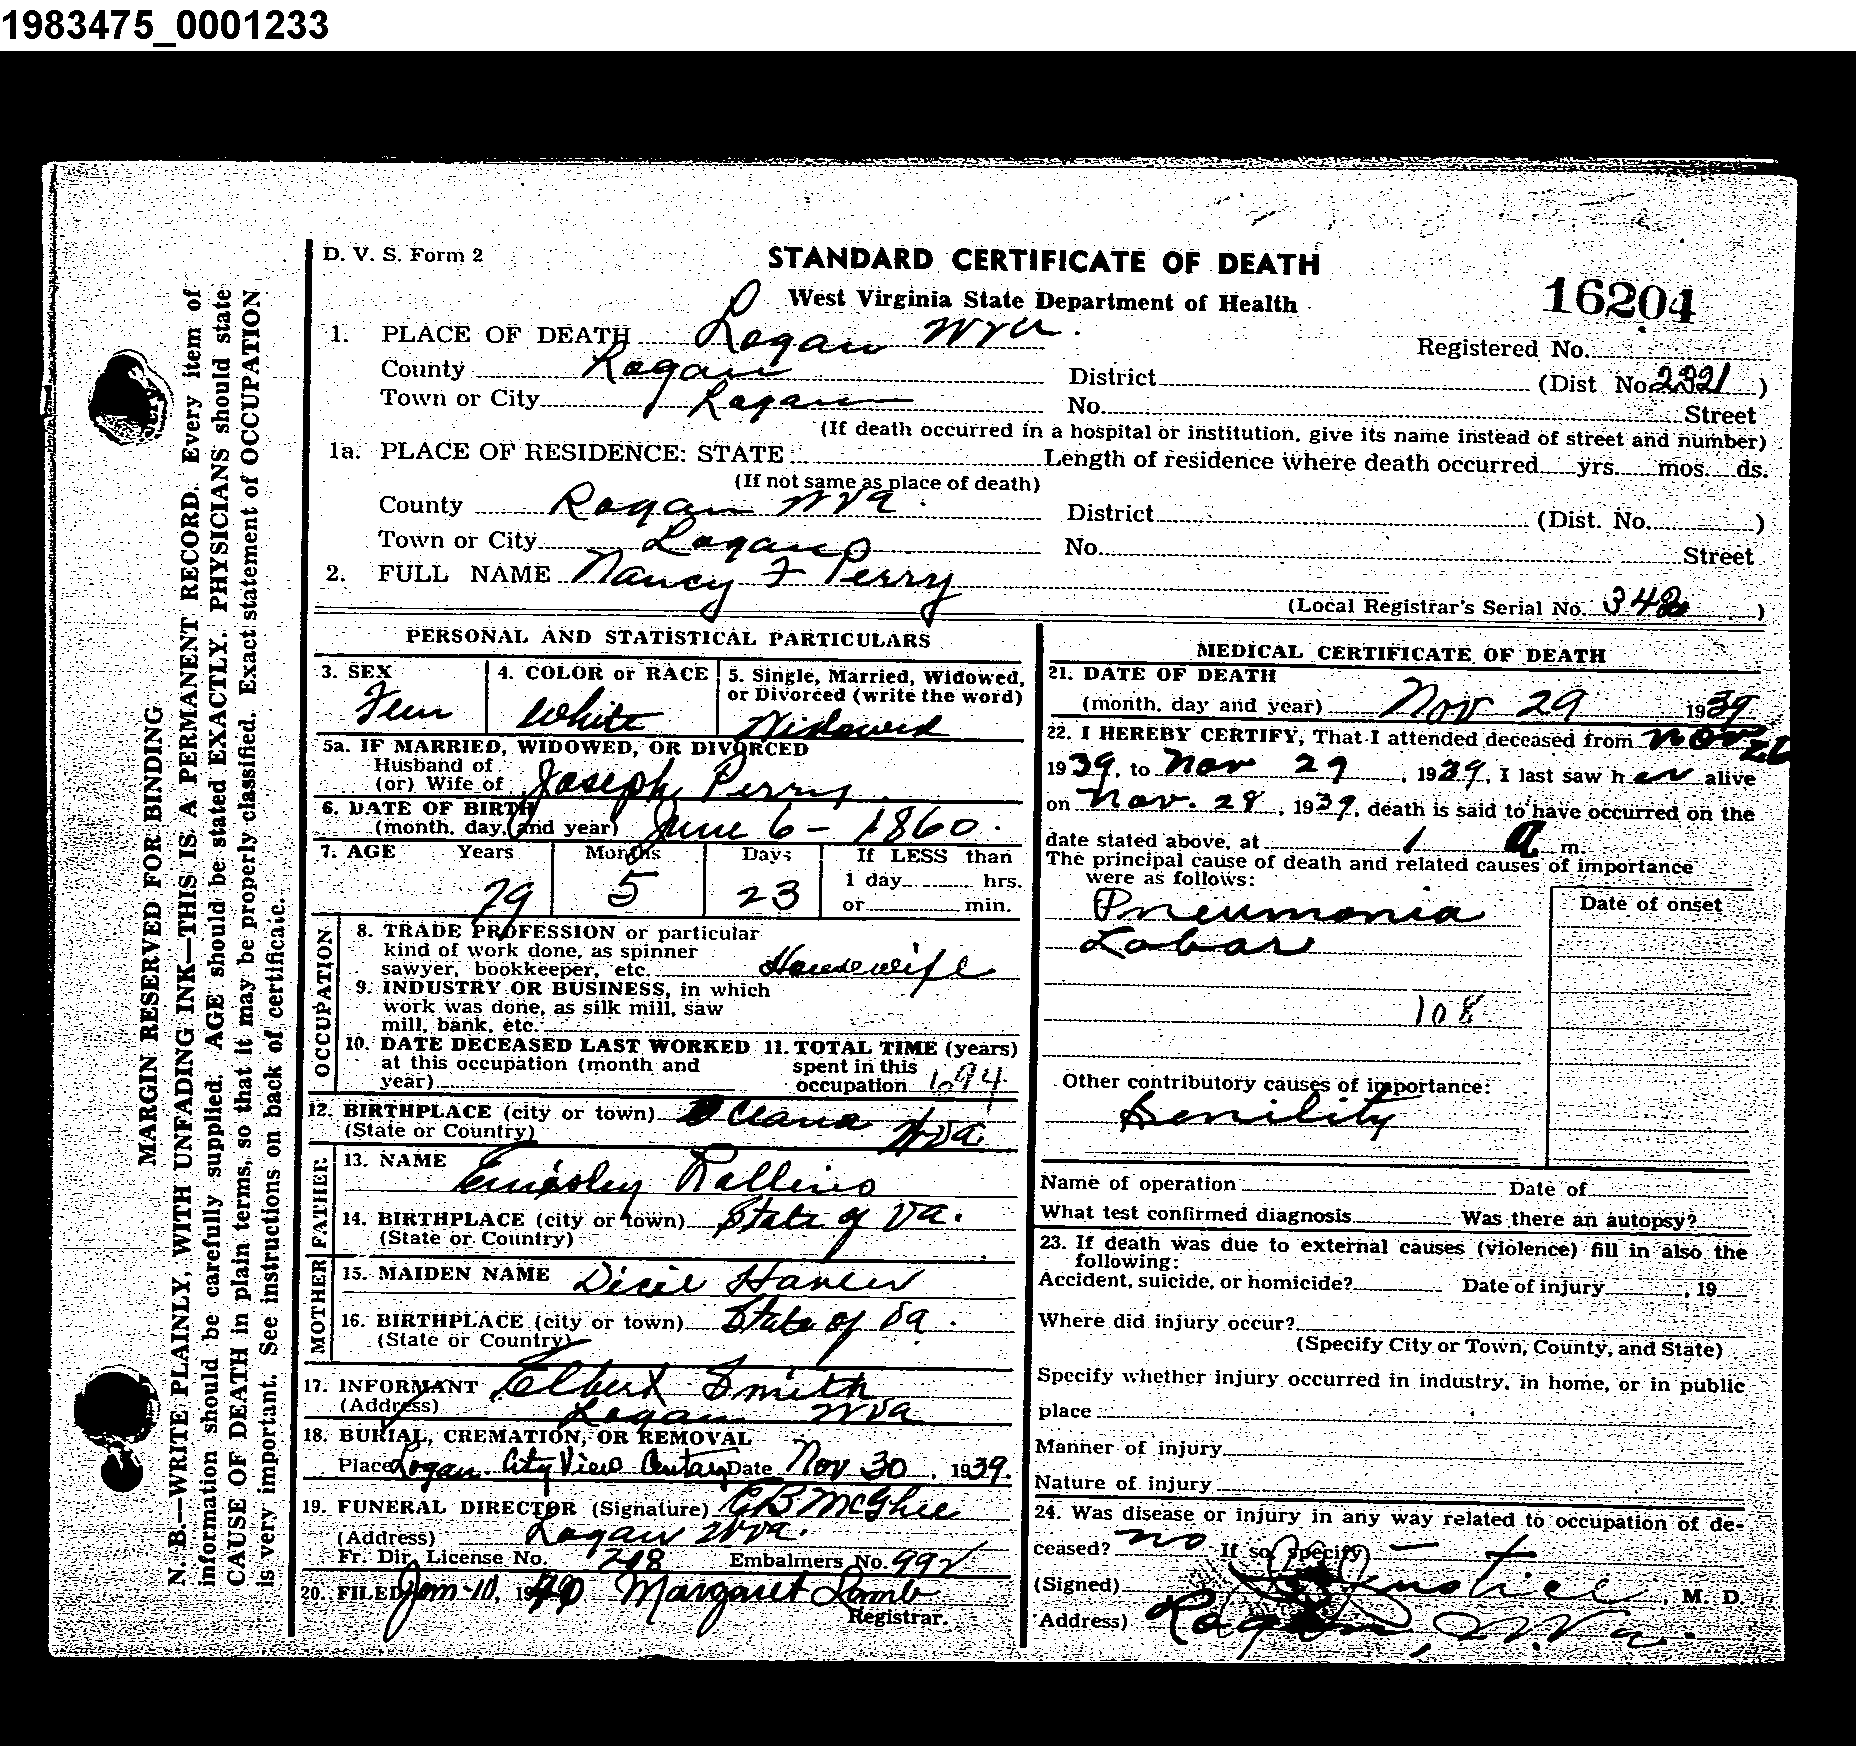 1983475_0001233
D. V. S. Form 2
STANDARD CERTIFICATE OF DEATH
West Virginia State Department of Health
16204
1. PLACE OF DEATH Logan W Va.
Registered No.
County Logan District (Dist No. 2321)
Town or City Logan No. Street
(If death occurred in a hospital or institution, give its name instead of street and number)
1a. PLACE OF RESIDENCE: STATE Length of residence where death occurred yrs. mos. ds.
(If not same as place of death)
County Logan W Va. District (Dist. No. )
Town or City Logan No. Street
2. FULL NAME Nancy F Perry
(Local Registrar's Serial No. 342)
MARGIN RESERVED FOR BINDING
N. B.—WRITE PLAINLY, WITH UNFADING INK—THIS IS A PERMANENT RECORD. Every item of
information should be carefully supplied. AGE should be stated EXACTLY. PHYSICIANS should state
CAUSE OF DEATH in plain terms, so that it may be properly classified. Exact statement of OCCUPATION
is very important. See instructions on back of certificate.
PERSONAL AND STATISTICAL PARTICULARS
3. SEX 4. COLOR or RACE 5. Single, Married, Widowed,
or Divorced (write the word)
Fem White Widowed
5a. IF MARRIED, WIDOWED, OR DIVORCED
Husband of
(or) Wife of Joseph Perry
6. DATE OF BIRTH
(month, day, and year) June 6 - 1860.
7. AGE Years Months Days If LESS than
1 day hrs.
79 5 23
or min.
OCCUPATION
8. TRADE PROFESSION or particular
kind of work done, as spinner
sawyer, bookkeeper, etc. Housewife
9. INDUSTRY OR BUSINESS, in which
work was done, as silk mill, saw
mill, bank, etc.
10. DATE DECEASED LAST WORKED 11. TOTAL TIME (years)
at this occupation (month and spent in this
year) occupation 1694
12. BIRTHPLACE (city or town) Oceana
(State or Country) W Va
FATHER
13. NAME Rollins
14. BIRTHPLACE (city or town) State of Va.
(State or Country)
MOTHER
15. MAIDEN NAME Dicie
16. BIRTHPLACE (city or town) State of Va.
(State or Country)
17. INFORMANT Elbert Smith
(Address) Logan W Va
18. BURIAL, CREMATION, OR REMOVAL
Place Logan City View Date Nov 30, 1939.
19. FUNERAL DIRECTOR (Signature) C B McGhee
(Address) Logan W Va.
Fr. Dir. License No. 248 Embalmers No. 992
20. FILED Jan-10, 1940 Margaret Lamb
Registrar.
MEDICAL CERTIFICATE OF DEATH
21. DATE OF DEATH
(month, day and year) Nov 29 1939
22. I HEREBY CERTIFY, That I attended deceased from Nov 26
1939, to Nov 29, 1939, I last saw her alive
on Nov. 28, 1939, death is said to have occurred on the
date stated above, at 1 a m.
The principal cause of death and related causes of importance
were as follows:
Date of onset
Pneumonia
Lobar
108
Other contributory causes of importance:
Senility
Name of operation Date of
What test confirmed diagnosis Was there an autopsy?
23. If death was due to external causes (violence) fill in also the
following:
Accident, suicide, or homicide? Date of injury , 19
Where did injury occur?
(Specify City or Town, County, and State)
Specify whether injury occurred in industry, in home, or in public
place
Manner of injury
Nature of injury
24. Was disease or injury in any way related to occupation of de-
ceased? no If so, specify —
(Signed) , M. D.
(Address) Logan, W. Va.